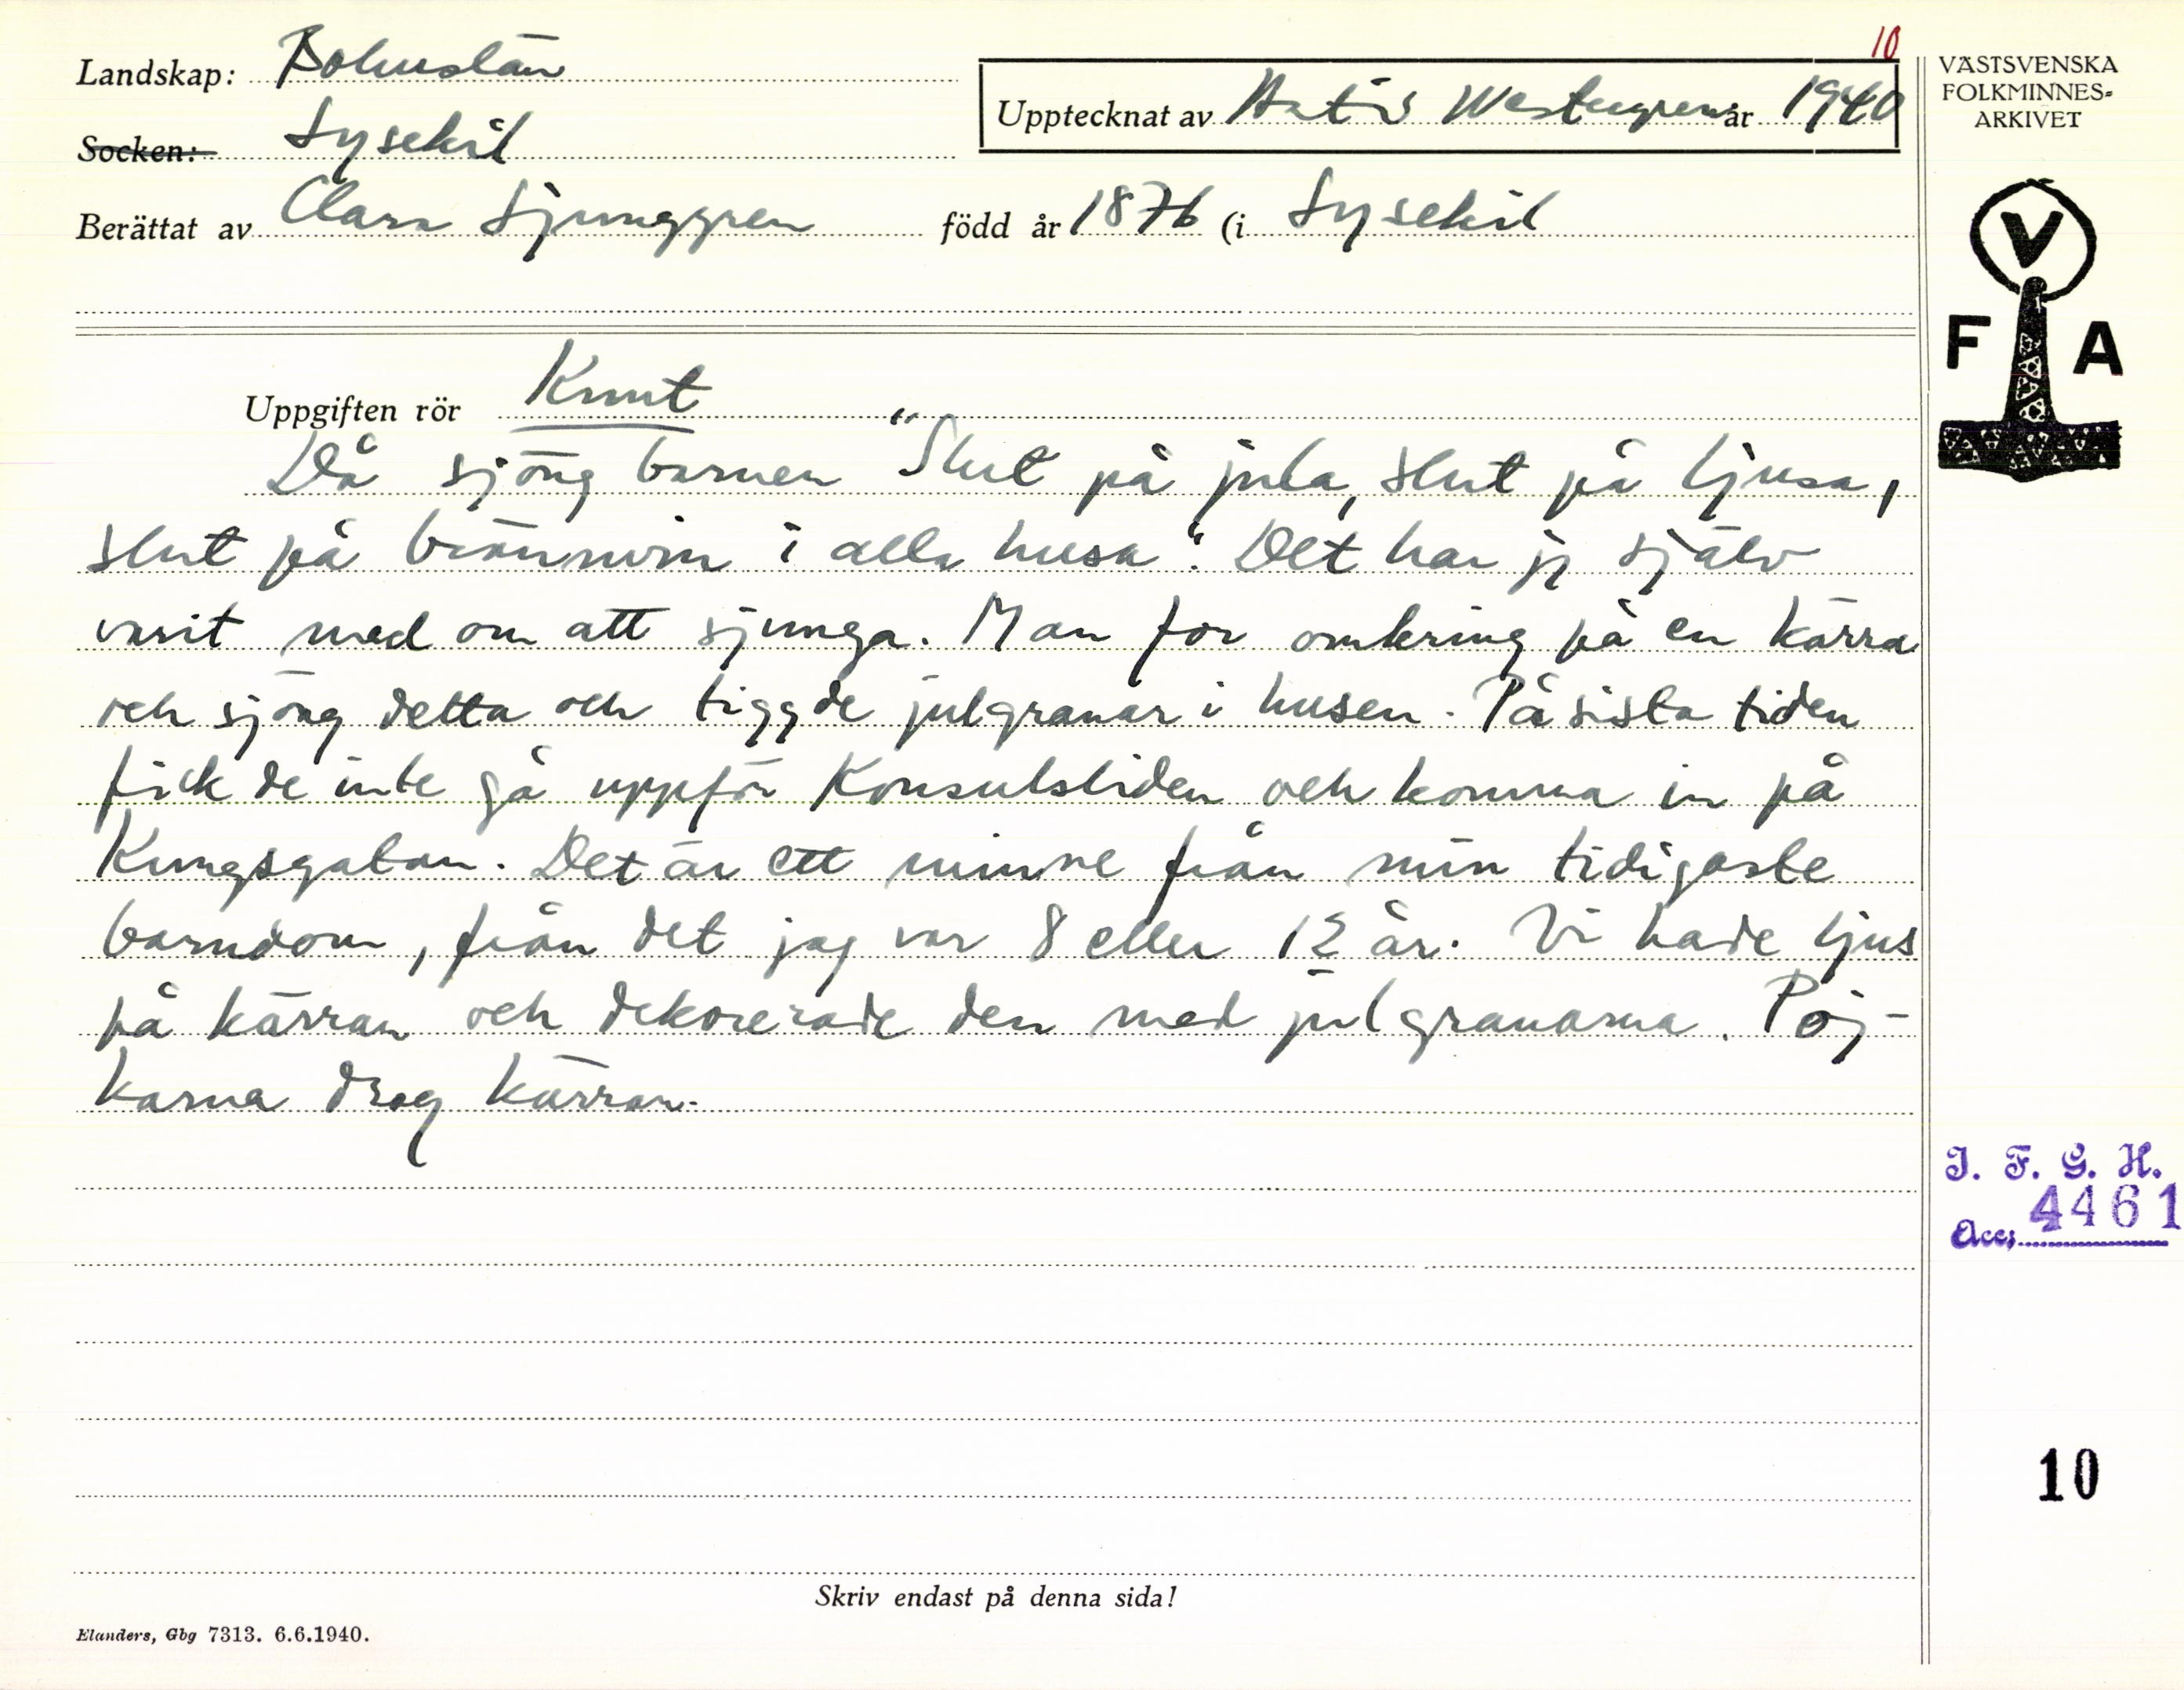 10
Landskap: Bohuslän
Upptecknat av Westergren år 1940
VÄSTSVENSKA
FOLKMINNES-
ARKIVET
Socken: Lysekil
Berättat av Clara Ljunggren född år 1876 (i Lysekil
V
F A
Uppgiften rör Knut
Då sjöng barnen "Slut på jula, slut på ljusa,
slut på brännvin i alla husa". Det har jg själv
varit med om att sjunga. Man for omkring på en kärra
och sjöng detta och tiggde julgranar i husen. På sista tiden
fick de inte gå uppför Konsulsliden och komma in på
Kungsgatan. Det är ett minne från min tidigaste
barndom, från det jag var 8 eller 12 år. Vi hade ljus
på kärran och dekorerade den med julgranarna. Poj-
karna drog kärran.
I. F. G. H.
Acc. 4461
10
Skriv endast på denna sida!
Elanders, Gbg 7313. 6.6.1940.